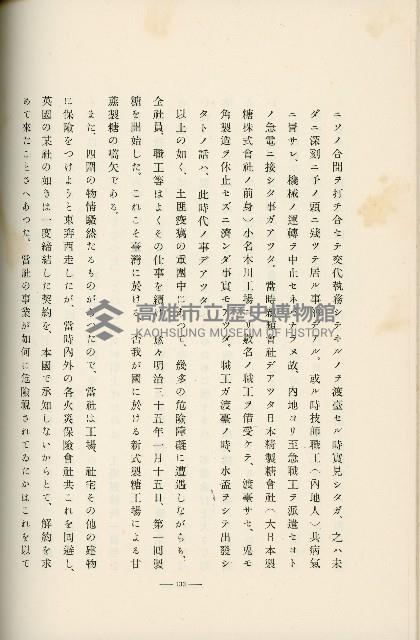 ニソノ合間ヲ打チ合セテ交代執務シテキルノヲ渡臺セル時實見シタガ、之ハ未
ダニ深刻ニ予ノ頭ニ殘ツテ居ル事デアル。或ル時技師職工(內地人)共病氣
ニ冒サレ、機械ノ運轉ヲ中止セネバナラヌ故、內地ヨリ至急職工ヲ派遣セヨト
ノ急電ニ接シタ事ガアツタ。當時姉妹會社デアツタ日本精製糖會社(大日本製
糖株式會社ノ前身)小名木川工場ヨリ數名ノ職工ヲ借受ケテ、渡臺サセ、兎モ
角製造ヲ休止セズニ濟ンダ事實モアツタ。職工ガ渡臺ノ時、水盃ヲシテ出發シ
タトノ話ハ、此時代ノ事デアツタ
以上の如く、土匪瘴癘の重圍中に在つて、幾多の危險障礙に遭遇しながらも、
全社員、職工等はよくその仕事を續け、愈々明治三十五年一月十五日、第一回製
糖を開始した。これこそ臺灣に於ける、否我が國に於ける新式製糖工場による甘
蔗製糖の嚆矢である。
また、四圍の物情騷然たるものがあつたので、當社は工場、社宅その他の建物
に保險をつけようと東奔西走したが、當時內外の各火災保險會社共これを回避し、
英國の某社の如きは一度締結した契約を、本國で承知しないからとて、解約を求
めて來たことさへあつた。當社の事業が如何に危險視されてゐたかはこれを以て
— 133 —
高雄市立歷史博物館
KAOHSIUNG MUSEUM OF HISTORY